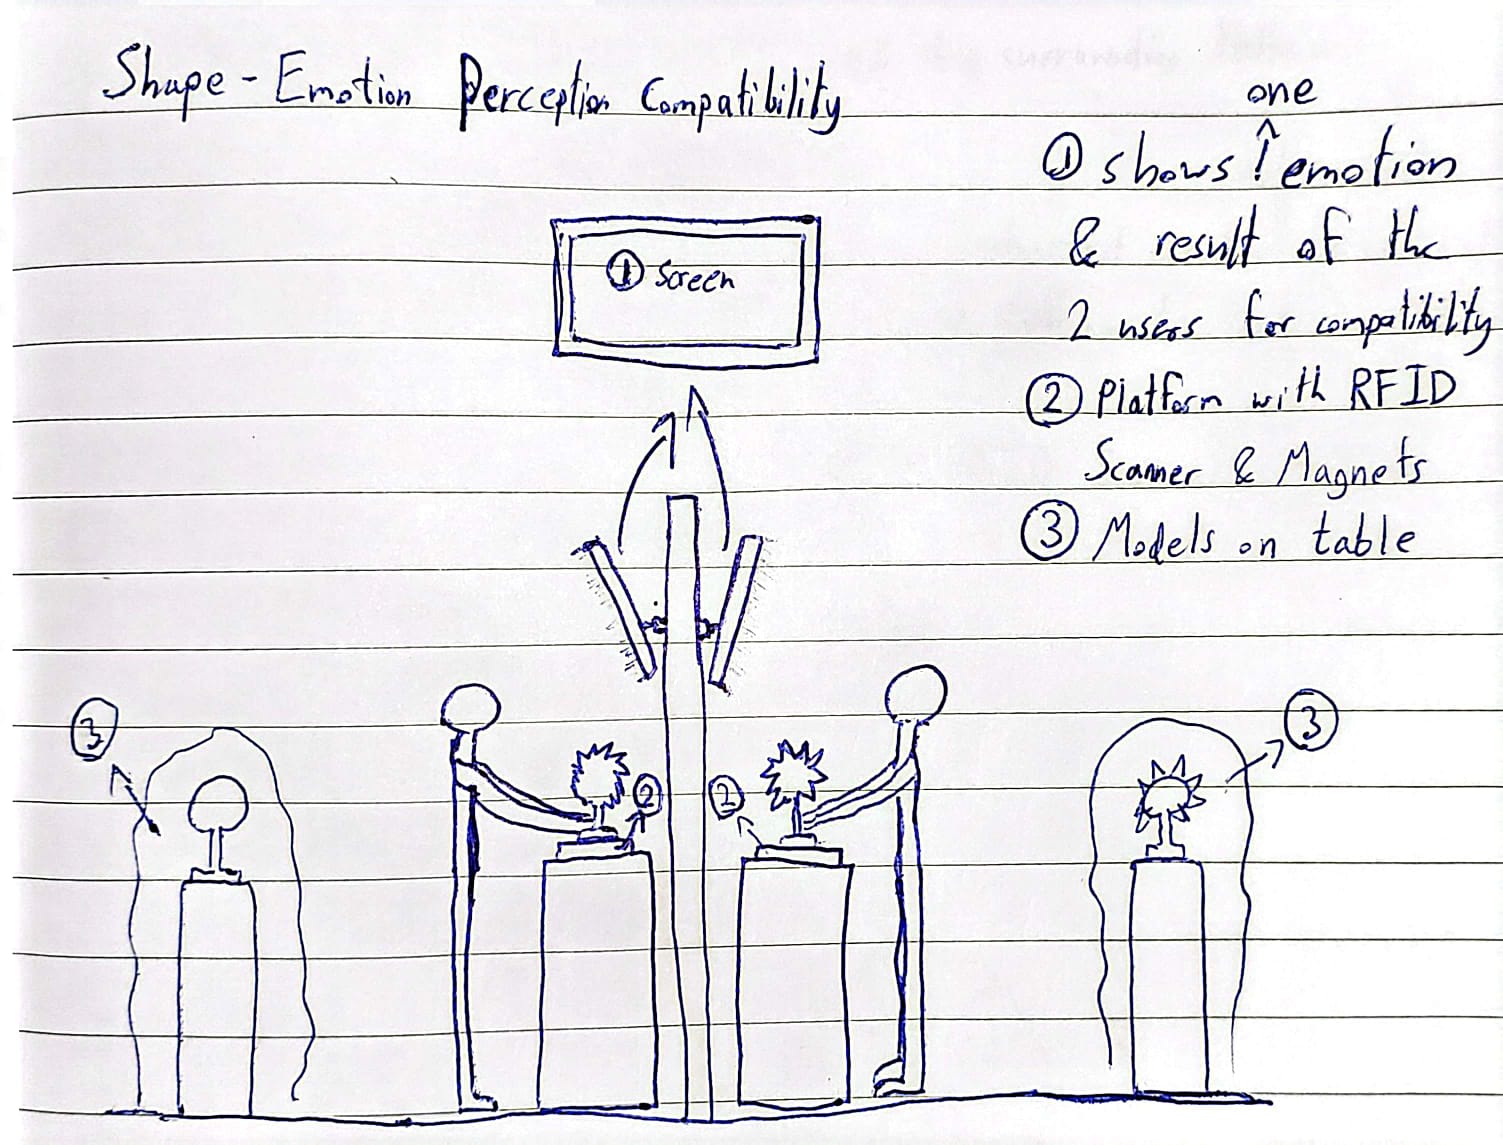 Shape - Emotion Perception Compatibility
one
① shows ! emotion
& result of the
2 users for compatibility
② Platform with RFID
Scanner & Magnets
③ Models on table
① Screen
③
③
②
②